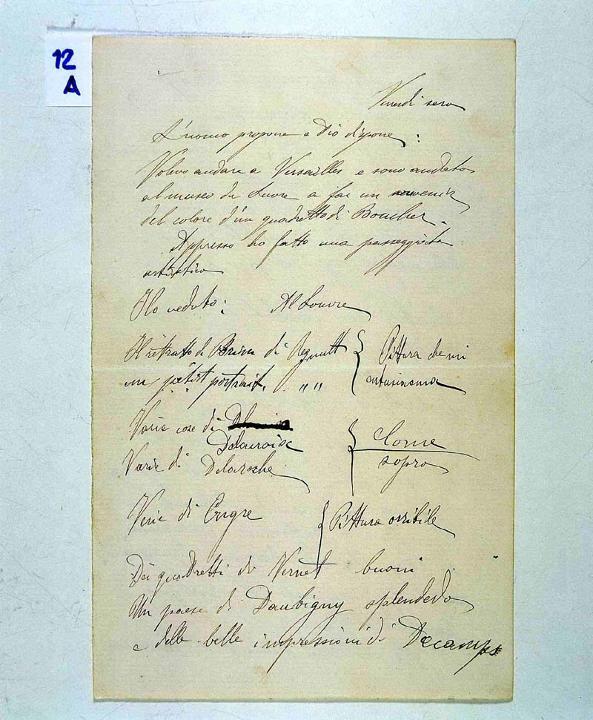 12
A
Venerdi sera
L'uomo propone e Dio dispone:
Volevo andare a Versailles e sono andato
al museo du Luvre a far un souvenir
del colore d'un quadretto di Boucher.
Appresso ho fatto una passeggiata
artistica
Ho veduto: Al Louvre
Il ritratto di Prim di Regnault } Pittura che mi
un petit portrait " " " entusiasma
Varie cose di
Delacroix } Come
Varie di Delaroche sopra
Varie di Engre } Pittura orribile
Dei quadretti di Vernet buoni
Un paese di Daubigny splendido
e delle belle impressioni di Decamps